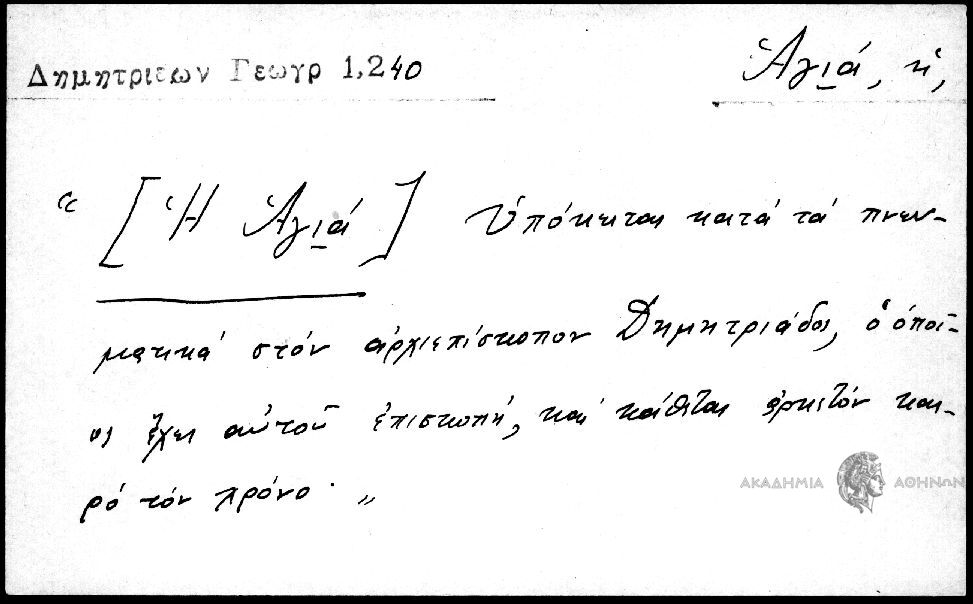 Δημητριεων Γεωγρ 1,240
Ἁγιά, ἡ,
“ [Ἡ Ἁγιά] Ὑπόκειται κατά τά πνευ-
ματικά στόν ἀρχιεπίσκοπον Δημητριάδος, ὁ ὁποῖ-
ος ἔχει αὐτοῦ ἐπισκοπή, καί κάθεται ἀρκετόν και-
ρό τόν χρόνο. ”
ΑΚΑΔΗΜΙΑ ΑΘΗΝΩΝ